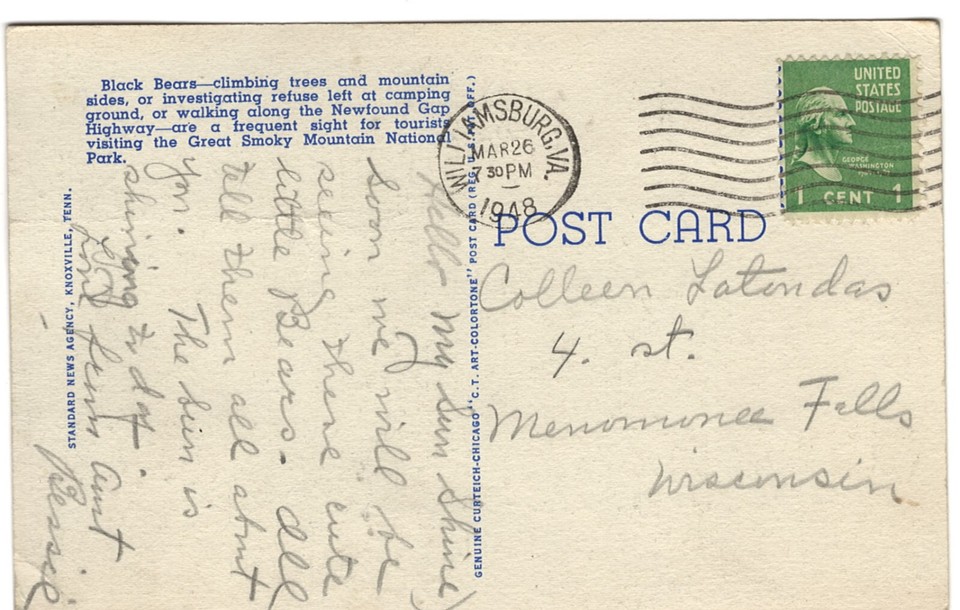 Black Bears—climbing trees and mountain
sides, or investigating refuse left at camping
ground, or walking along the Newfound Gap
Highway—are a frequent sight for tourists
visiting the Great Smoky Mountain National
Park.
STANDARD NEWS AGENCY, KNOXVILLE, TENN.
Hello My Sun Shine
soon we will be
seeing there cute
little Bears.
tell them all about
you. The Sun is
shining to day.
from aunt
Bessie
GENUINE CURTEICH-CHICAGO "C.T. ART-COLORTONE" POST CARD (REG. U.S. PAT. OFF.)
WILLIAMSBURG, VA.
MAR 26
7 30 PM
1948
UNITED
STATES
POSTAGE
GEORGE
WASHINGTON
1 CENT 1
POST CARD
Colleen
4. st.
Menomonee Falls
Wisconsin